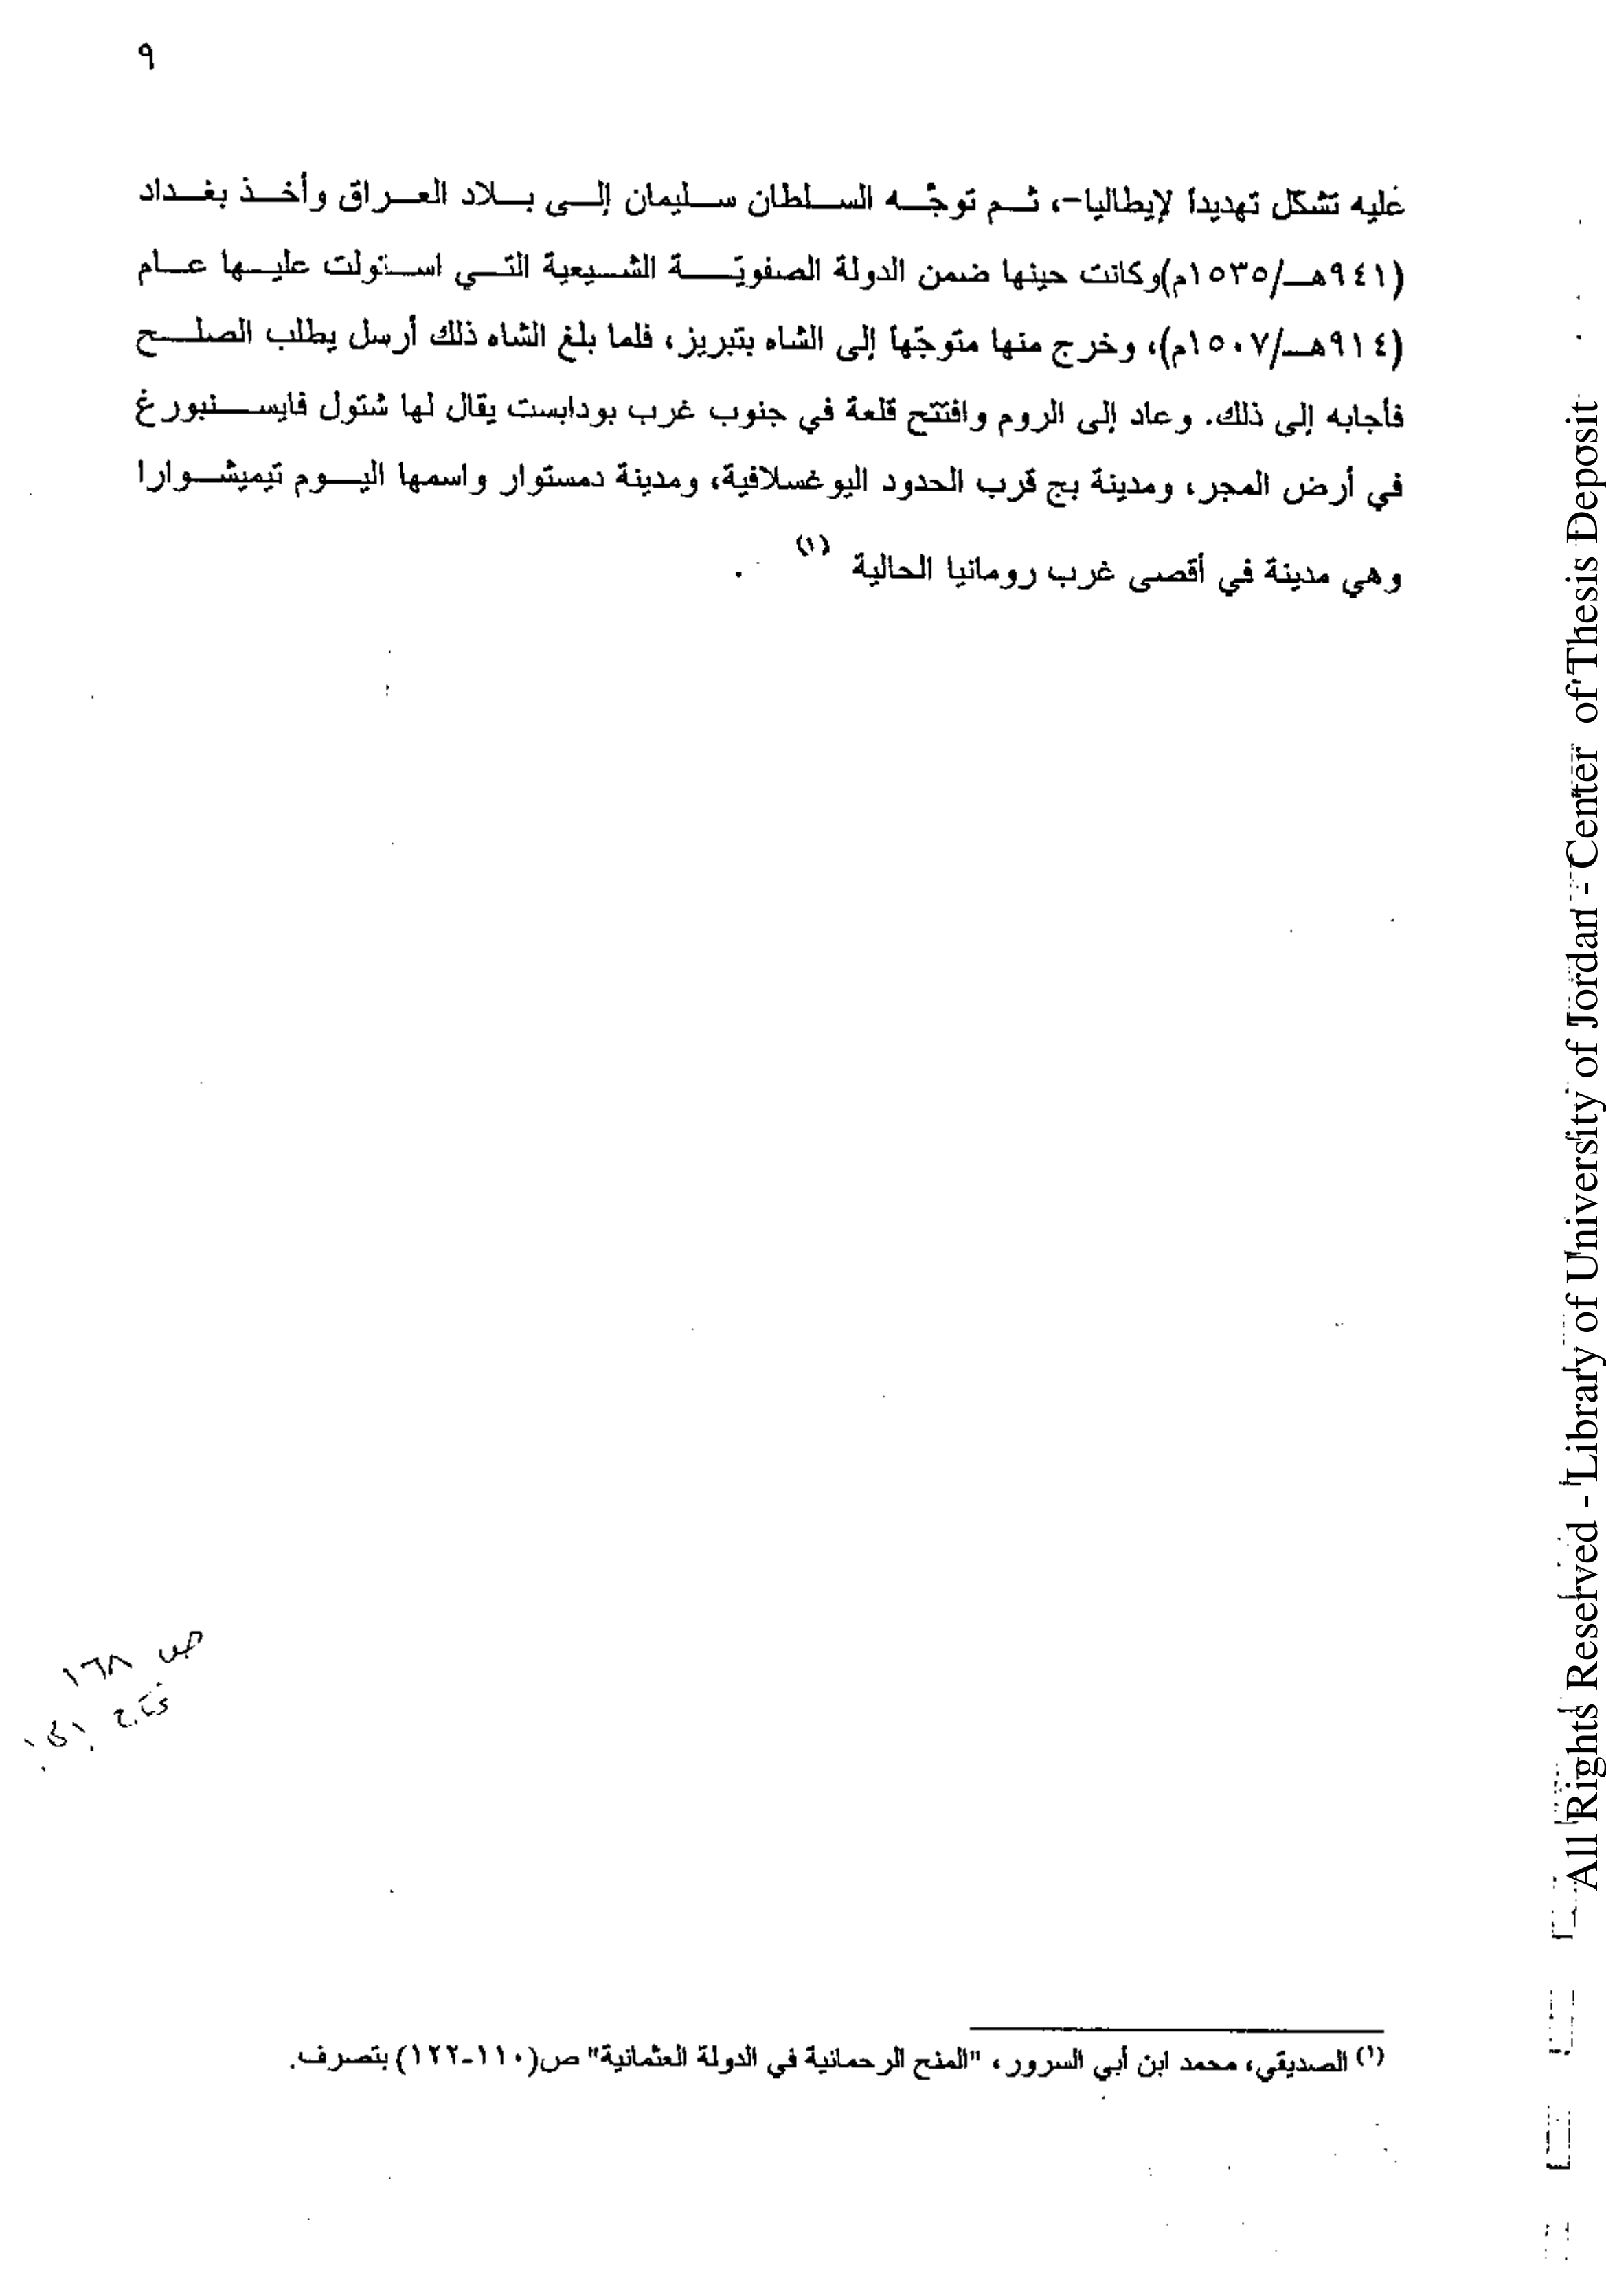 ٩
عليه تشكل تهديداً لإيطاليا-، ثم توجّه السلطان سليمان إلى بلاد العراق وأخذ بغداد
(٩٤١هـ/١٥٣٥م)وكانت حينها ضمن الدولة الصفويّة الشيعية التي استولت عليها عام
(٩١٤هـ/١٥٠٧م)، وخرج منها متوجّهاً إلى الشاه بتبريز، فلما بلغ الشاه ذلك أرسل يطلب الصلح
فأجابه إلى ذلك. وعاد إلى الروم وافتتح قلعة في جنوب غرب بودابست يقال لها شتول فايسنبورغ
في أرض المجر، ومدينة بج قرب الحدود اليوغسلافية، ومدينة دمستوار واسمها اليوم تيميشوارا
وهي مدينة في أقصى غرب رومانيا الحالية (١) .
ص ١٦٨
(١) الصديقي، محمد ابن أبي السرور، "المنح الرحمانية في الدولة العثمانية" ص(١١٠-١٢٢) بتصرف.
All Rights Reserved - Library of University of Jordan - Center of Thesis Deposit